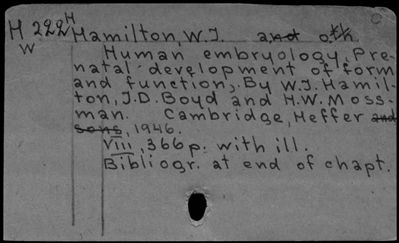 H 222 H Hamilton, W.J. and oth.
W
Human embryology; Pre-
natal development of form
and function; By W.J. Hamil-
ton, J.D. Boyd and H.W. Moss-
man. Cambridge, Heffer and
sons, 1946.
VIII, 366 p. with ill.
Bibliogr. at end of chapt.